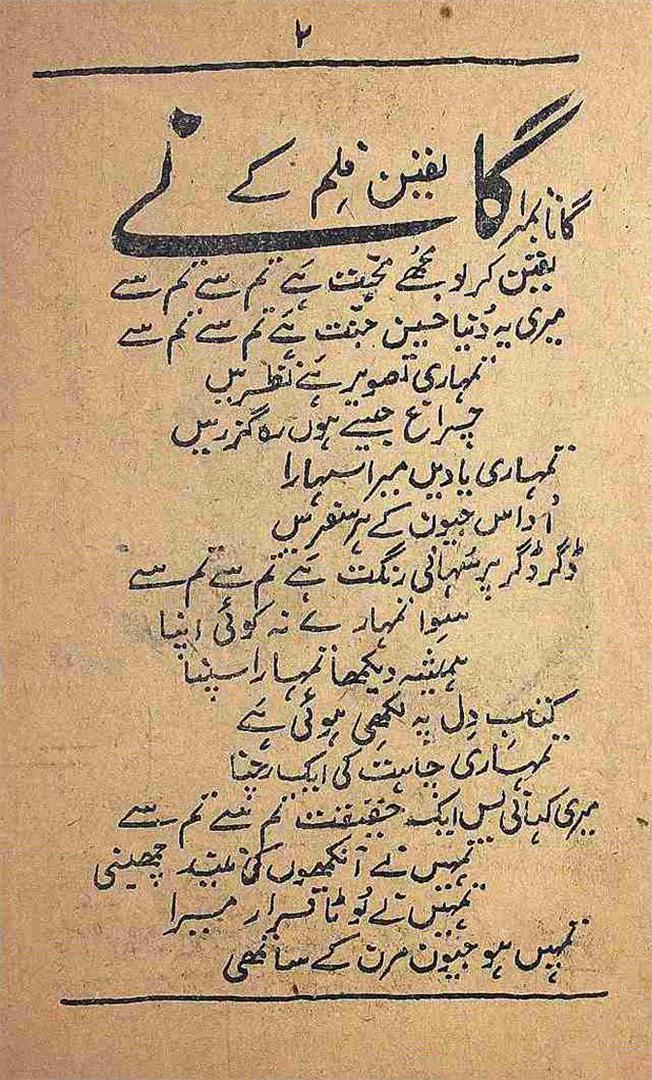 ۲
یقین فلم کے
گانے
گانا نمبر ۱
یقین کر لو مجھے محبت ہے تم سے تم سے
میری یہ دُنیا حسین جنّت ہے تم سے تم سے
تمہاری تصویر ہے نظر میں
چراغ جیسے ہوں رہ گزر میں
تمہاری یادیں میرا سہارا
اُداس جیون کے ہر سفر میں
ڈگر ڈگر پر سُہانی رنگت ہے تم سے تم سے
سِوا تمہارے نہ کوئی اپنا
ہمیشہ دیکھا تمہارا سپنا
کتابِ دِل پہ لکھی ہوئی ہے
تمہاری چاہت کی ایک رچنا
میری کہانی بس ایک حقیقت تم سے تم سے
تمہیں نے آنکھوں کی نیند چھینی
تمہیں نے لُوٹا قرار میرا
تمہیں ہو جیون مرن کے ساتھی